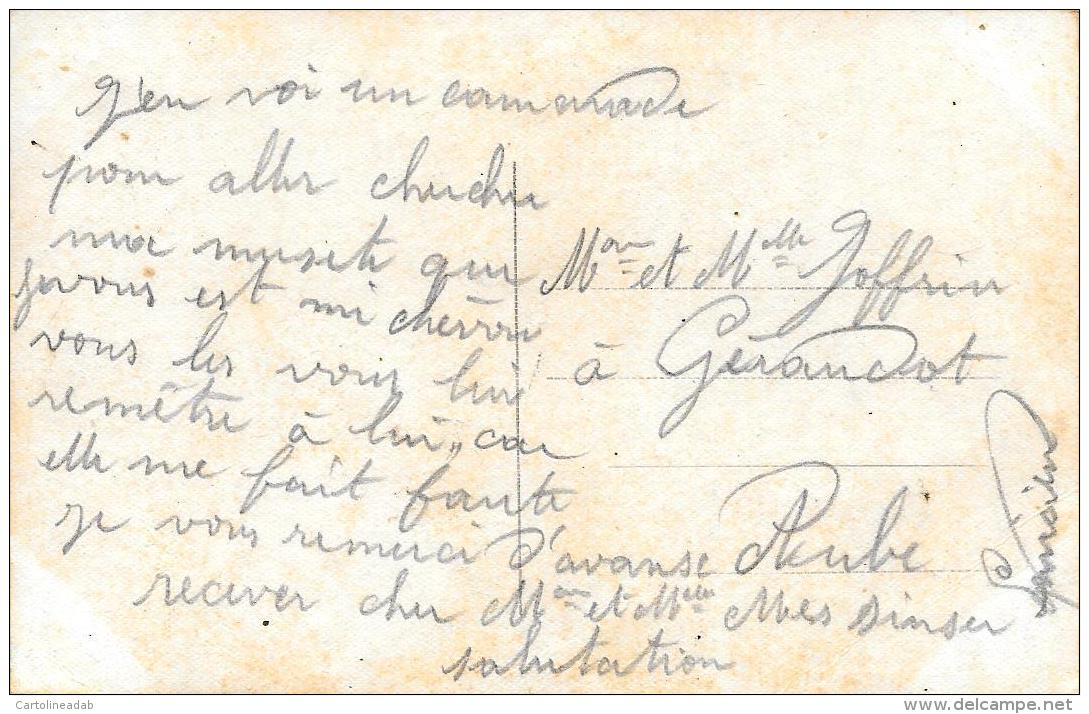 J'en voi un cammrade
pour aller chercher
ma musete que
javous est mi cherrou
vous les vous lui
remêtre à lui, car
elle me fait faute
je vous remerci d'avanse
recever cher Mme et Melle Mes sinser
salutation
Mme et Melle Joffrin
à Géraudot
Aube
Cartolineadab
www.delcampe.net